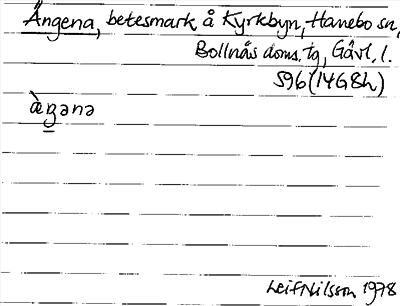 Ängena, betesmark å Kyrkbyn, Hanebo sn,
Bollnäs doms. tg, Gävl. l.
596 (14G8h)
æ̀ŋəna
Leif Nilsson 1978